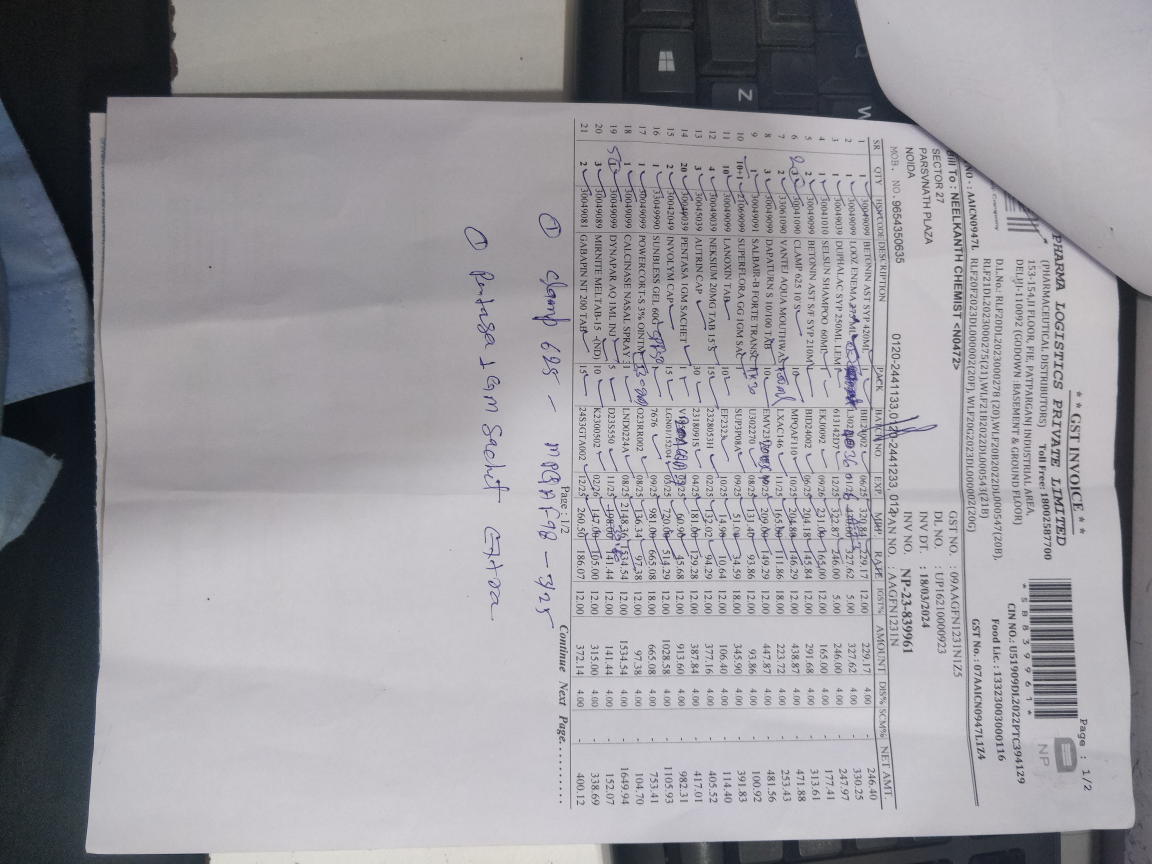 * * GST INVOICE * *
Page : 1/2
PHARMA LOGISTICS PRIVATE LIMITED
(PHARMACEUTICAL DISTRIBUTORS) Toll Free: 18002587700
153-154,II FLOOR, FIE, PATPARGANJ INDUSTRIAL AREA,
DELHI-110092 (GODOWN :BASEMENT & GROUND FLOOR)
D.L.No.: RLF20DL2023000278 (20),WLF20B2022DL000547(20B),
RLF21DL2023000275(21),WLF21B2022DL000543(21B)
RLF20F2023DL000002(20F), WLF20G2023DL000002(20G)
* 5 8 8 3 9 9 6 1 *
NP
CIN NO.: U51909DL2022PTC394129
Food Lic.: 13323003000116
GST No.: 07AAICN0947L1Z4
NO.: AAICN0947L
Bill To : NEELKANTH CHEMIST <N0472>
SECTOR 27
PARSVNATH PLAZA
NOIDA
MOB. NO.:9654350635 0120-2441133,0120-2441233, 012
GST NO. : 09AAGFN1231N1Z5
DL NO. : UP16210000923
INV DT. : 18/03/2024
INV NO. : NP-23-839961
PAN NO. : AAGFN1231N
SR QTY HSN CODE DESCRIPTION PACK BATCH NO. EXP. MRP RATE IGST% AMOUNT DIS% SCM% NET AMT.
1 1 30049099 BETONIN AST SYP 420ML BIE24002 06/25 320.84 229.17 12.00 229.17 4.00 - 246.40
2 1 30049099 LOOZ ENEMA 01/26 327.62 5.00 327.62 4.00 - 330.25
3 1 30049039 DUPHALAC SYP 250ML LEM 1 613142D7 12/25 322.87 246.00 5.00 246.00 4.00 - 247.97
4 1 30041010 SELSUN SHAMPOO 60ML 1 EKJ0092 09/26 231.00 165.00 12.00 165.00 4.00 - 177.41
5 2 30049099 BETONIN AST S/F SYP 210ML BID24002 06/25 204.18 145.84 12.00 291.68 4.00 - 313.61
6 30041090 CLAMP 625 10'S 10 MPQAF110 10/25 204.80 146.29 12.00 438.87 4.00 - 471.88
7 2 33061090 VANTEJ AQUA MOUTHWAS LXAC146 11/25 165.00 111.86 18.00 223.72 4.00 - 253.43
8 3 30049099 DAPATURN S 10/100 TAB 10 209.00 149.29 12.00 447.87 4.00 - 481.56
9 1 30049991 SALBAIR-B FORTE TRANSC U302270 08/25 131.40 93.86 12.00 93.86 4.00 - 100.92
10 10+1 21069099 SUPERFLORA GG 1GM SAC 1 SUP3P08A 09/25 51.00 34.59 18.00 345.90 4.00 - 391.83
11 10 30049099 LANOXIN TAB 10 EF2323 10/25 14.90 10.64 12.00 106.40 4.00 - 114.40
12 4 30049039 NEKSIUM 20MG TAB 15'S 15 23280531H 02/25 132.02 94.29 12.00 377.16 4.00 - 405.52
13 3 30045039 AUTRIN CAP 30 23180915 04/25 181.00 129.28 12.00 387.84 4.00 - 417.01
14 20 30049039 PENTASA 1GM SACHET 1 60.90 45.68 12.00 913.60 4.00 - 982.31
15 2 30042049 INVOLYM CAP 15 LGN01/152/04 03/25 720.00 514.29 12.00 1028.58 4.00 - 1105.93
16 1 33049990 SUNBLESS GEL 60G 7676 09/25 981.00 665.08 18.00 665.08 4.00 - 753.41
17 1 30049099 POWERCORT-S 3% OINTM O23RR002 08/25 136.34 97.38 12.00 97.38 4.00 - 104.70
18 1 30049099 CALCINASE NASAL SPRAY 3 1 LND0224A 08/25 2148.36 1534.54 12.00 1534.54 4.00 - 1649.94
19 30049099 DYNAPAR AQ 1ML INJ 5 D23S550 11/25 198.00 141.44 12.00 141.44 4.00 - 152.07
20 3 30049089 MIRNITE MELTAB-15 -(ND) 10 K2300507 02/26 147.00 105.00 12.00 315.00 4.00 - 338.69
21 2 30049081 GABAPINT 200 TAB 15 24S3GTA002 12/25 260.50 186.07 12.00 372.14 4.00 - 400.12
Page : 1/2
Continue Next Page.........
① Clamp 625 - MPQAF98 - 3/25
① Pentasa 1 GM Sachet Extra